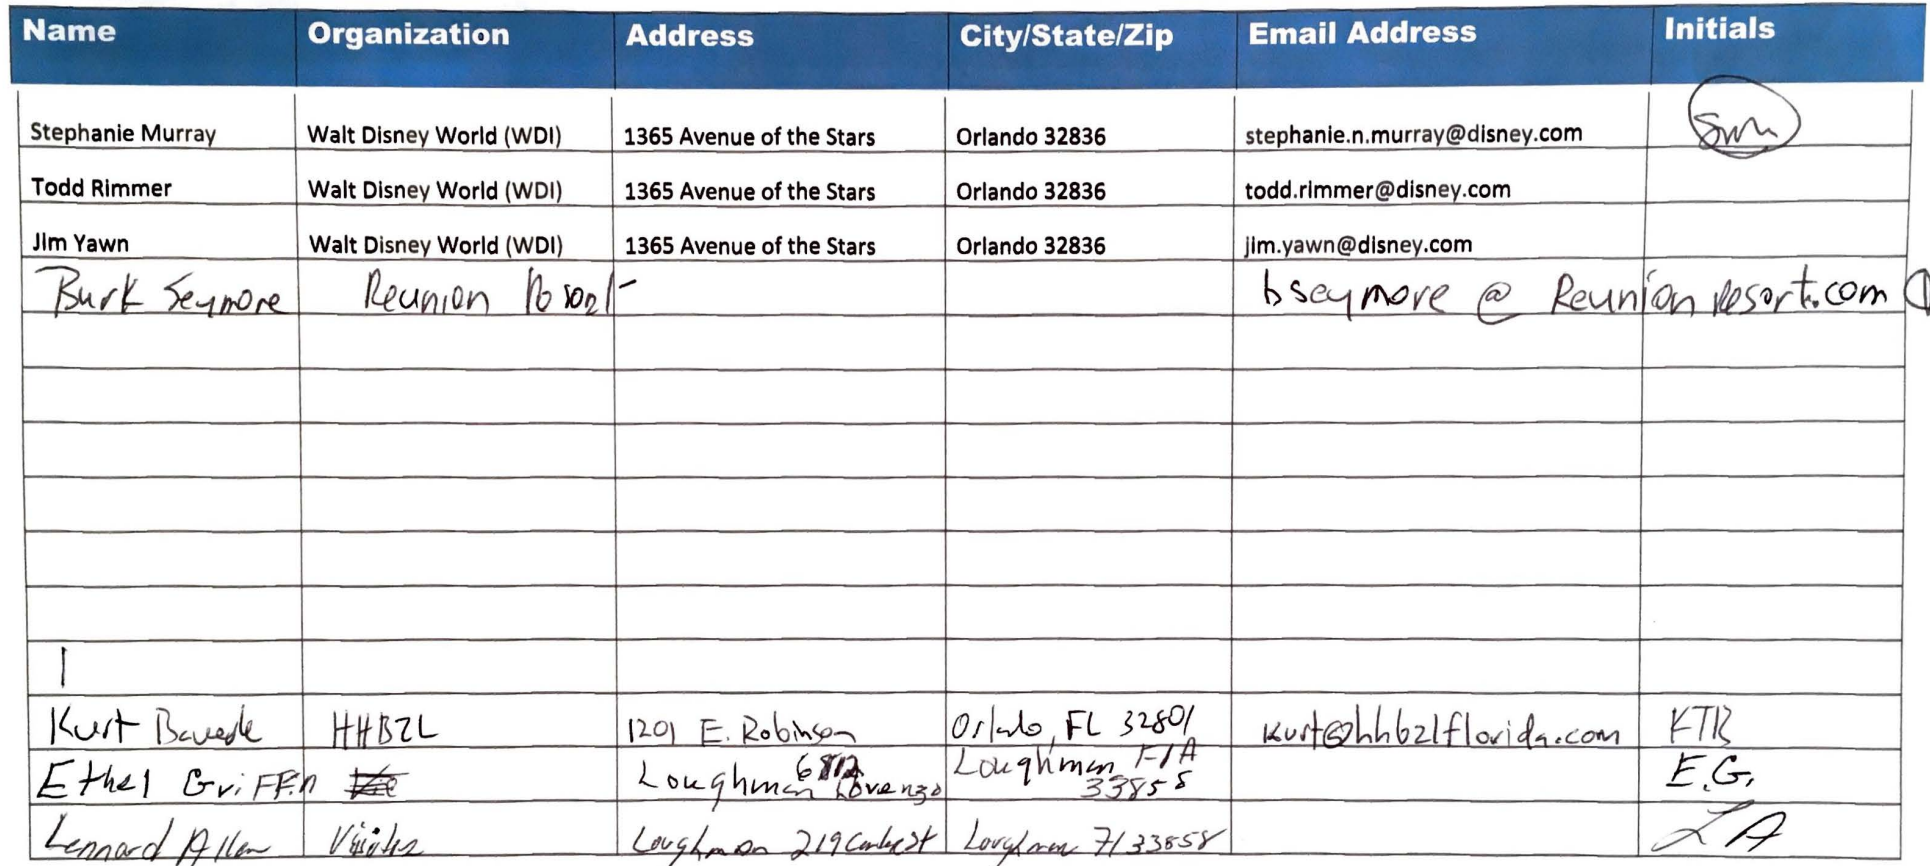 Name Organization Address City/State/Zip Email Address Initials
Stephanie Murray Walt Disney World (WDI) 1365 Avenue of the Stars Orlando 32836 stephanie.n.murray@disney.com SM
Todd Rimmer Walt Disney World (WDI) 1365 Avenue of the Stars Orlando 32836 todd.rimmer@disney.com
Jim Yawn Walt Disney World (WDI) 1365 Avenue of the Stars Orlando 32836 jim.yawn@disney.com
Burk Seymore Reunion Resort bseymore @ Reunion resort.com
Kurt HHBZL 1201 E. Robinson Orlando, FL 32801 kurt@hhbzlflorida.com KTB
Ethel GriFFin Loughman Lovenzo Loughman FlA 33858 E.G.
Lennard Allen Visitor Loughman 219 Loughman Fl 33858 LA